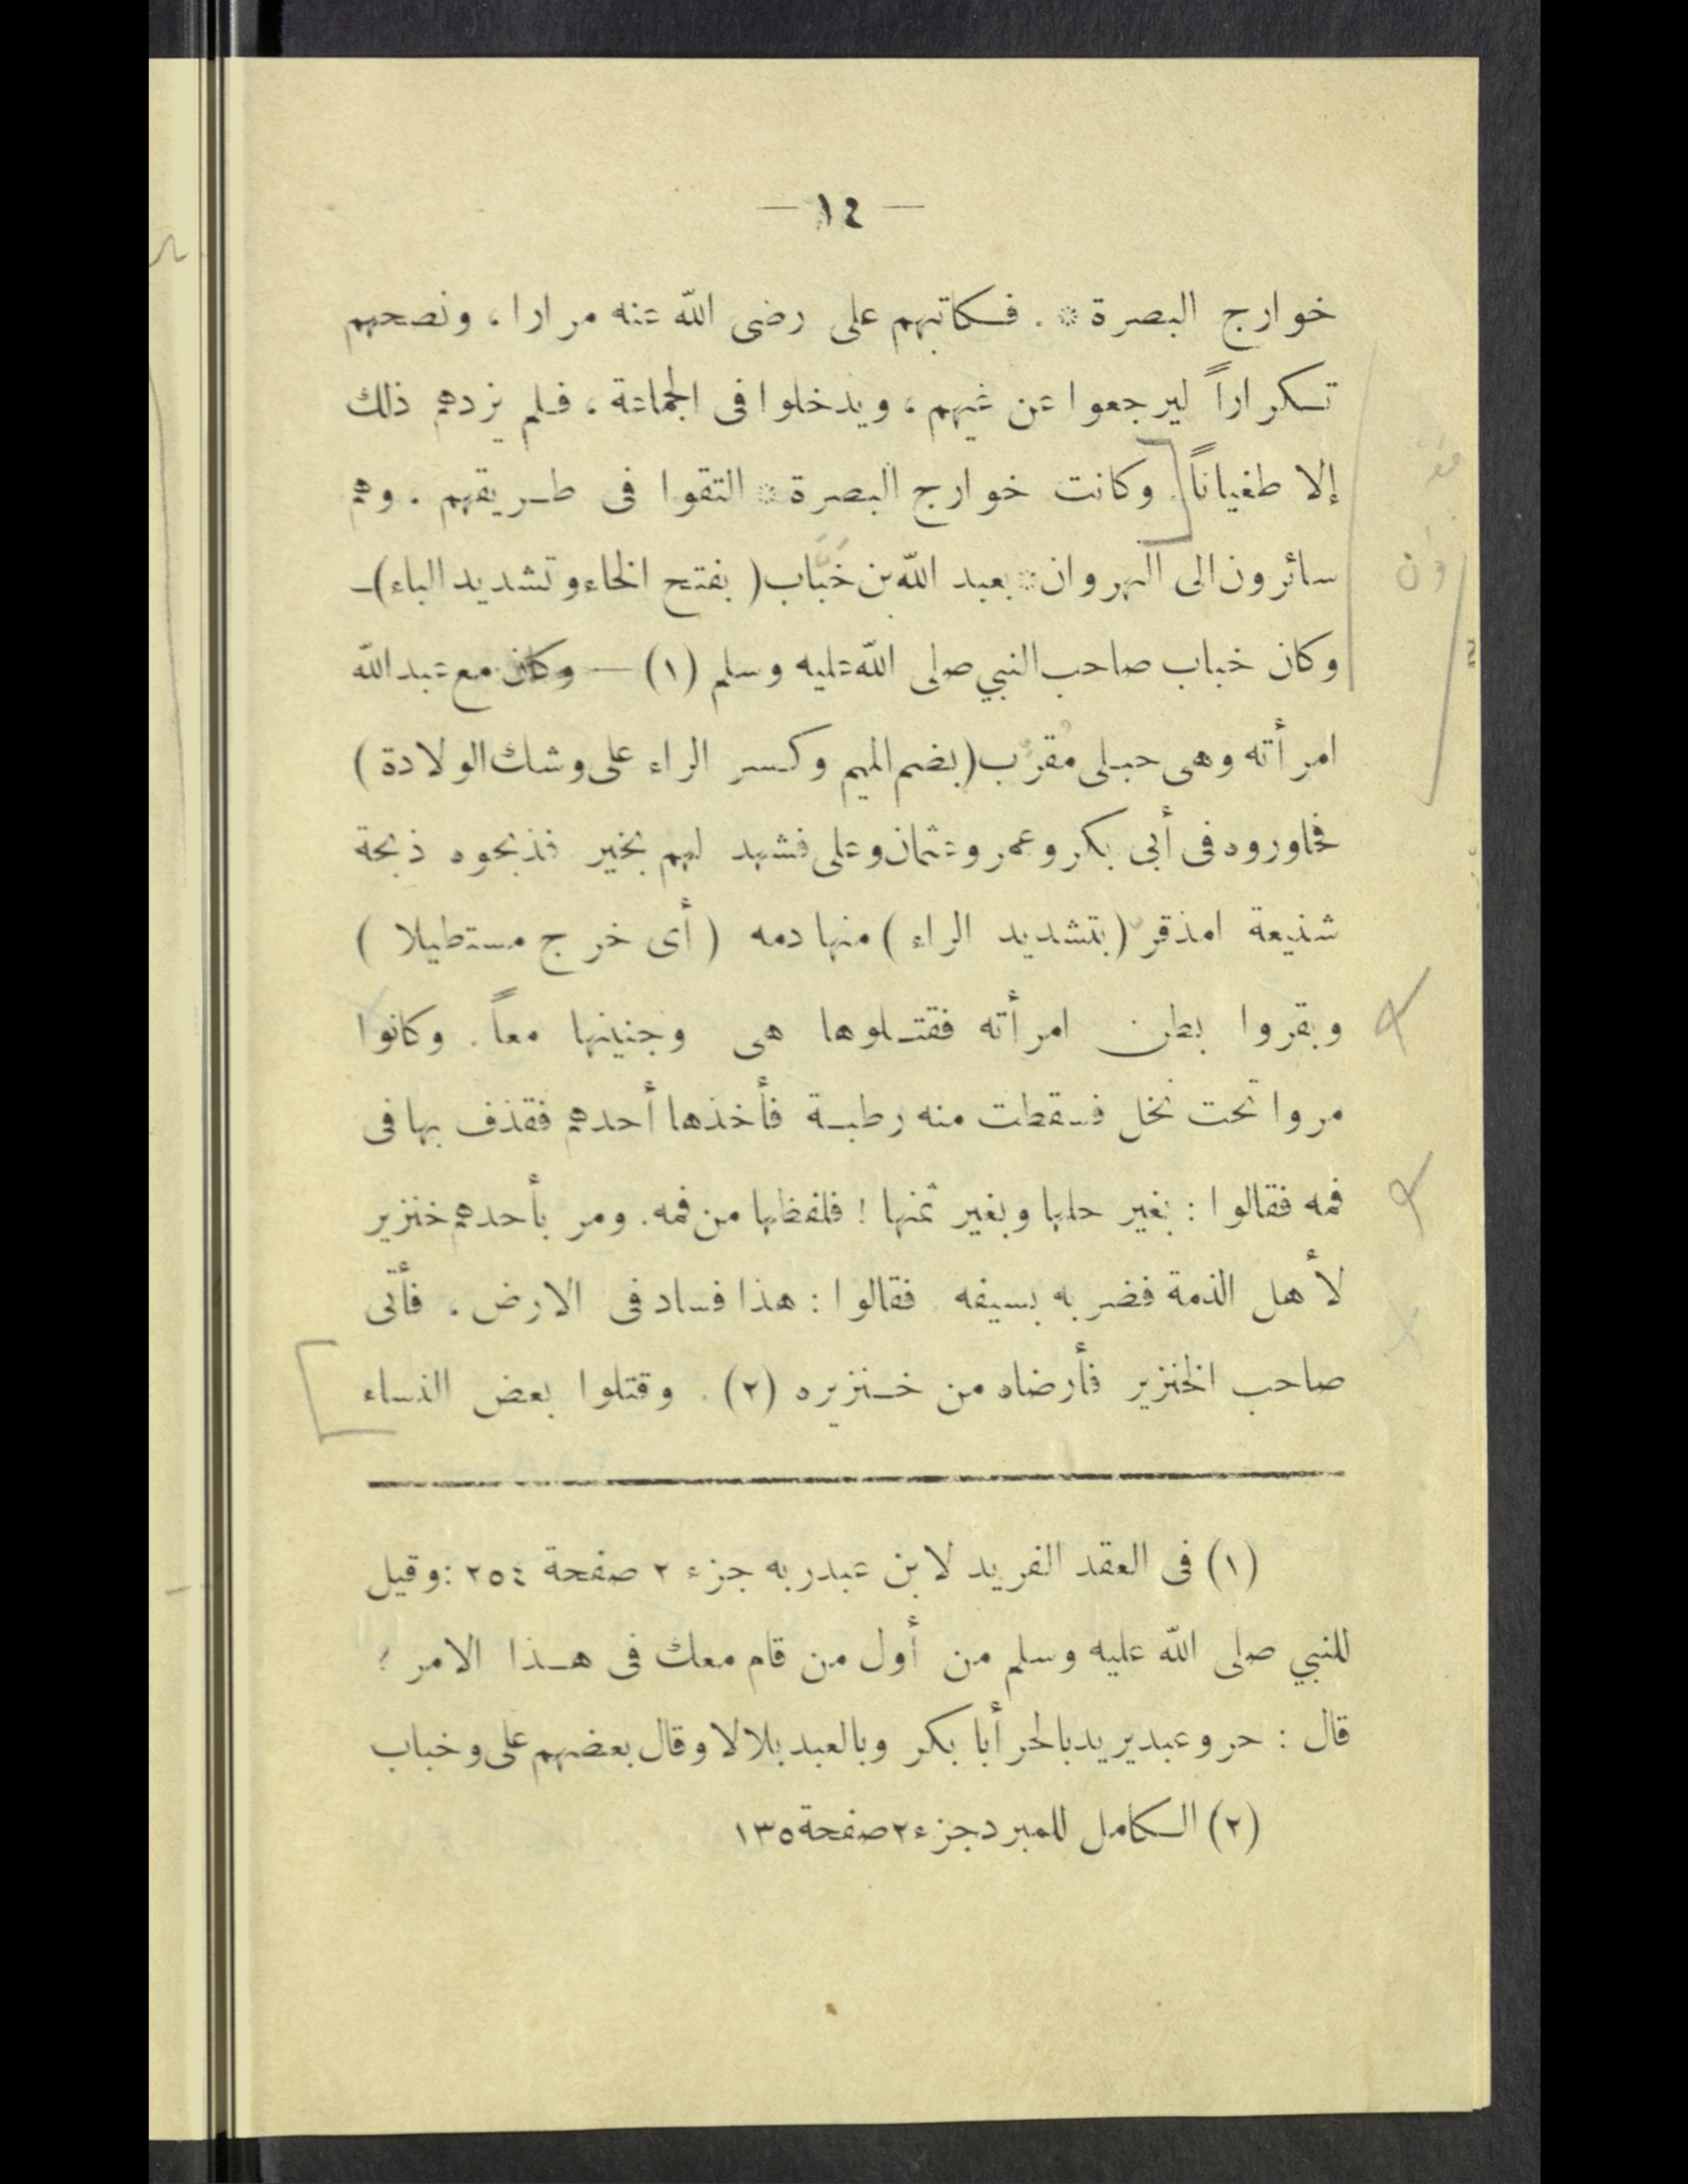 — ١٤ —
خوارج البصرة * . فكاتبهم على رضى الله عنه مرارا ، ونصحهم
تكراراً ليرجعوا عن غيهم ، ويدخلوا فى الجماعة ، فلم يزدهم ذلك
إلا طغياناً . وكانت خوارج البصرة * التقوا فى طريقهم . وهم
سائرون الى النهروان * بعبد الله بن خَبَّاب ( بفتح الخاء وتشديد الباء ) —
وكان خباب صاحب النبي صلى الله عليه وسلم (١) — وكان مع عبد الله
امرأته وهى حبلى مُقرِب ( بضم الميم وكسر الراء على وشك الولادة )
فحاوروه فى أبى بكر وعمر وعثمان وعلى فشهد لهم بخير فذبحوه ذبحة
شنيعة امذقرّ ( بتشديد الراء ) منها دمه ( أى خرج مستطيلا )
وبقروا بطن امرأته فقتلوها هى وجنينها معاً . وكانوا
مروا تحت نخل فسقطت منه رطبة فأخذها أحدهم فقذف بها فى
فمه فقالوا : بغير حلها وبغير ثمنها ! فلفظها من فمه . ومر بأحدهم خنزير
لأهل الذمة فضربه بسيفه فقالوا : هذا فساد فى الارض . فأتى
صاحب الخنزير فأرضاه من خنزيره (٢) . وقتلوا بعض النساء
(١) فى العقد الفريد لابن عبدربه جزء ٢ صفحة ٢٥٤ : وقيل
للنبي صلى الله عليه وسلم من أول من قام معك فى هذا الامر ؟
قال : حر وعبد يريد بالحر أبا بكر وبالعبد بلالا وقال بعضهم على وخباب
(٢) الكامل للمبرد جزء ٢ صفحة ١٣٥